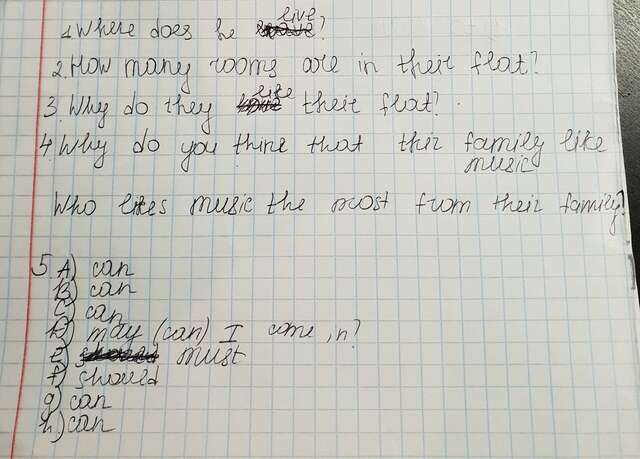 1. Where does he live?
2. How many rooms are in their flat?
3. Why do they like their flat?
4. Why do you think that their family like
music
Who likes music the most from their family?
5. A) can
B) can
C) can
D) may (can) I come in?
E) must
f) should
g) can
h) can